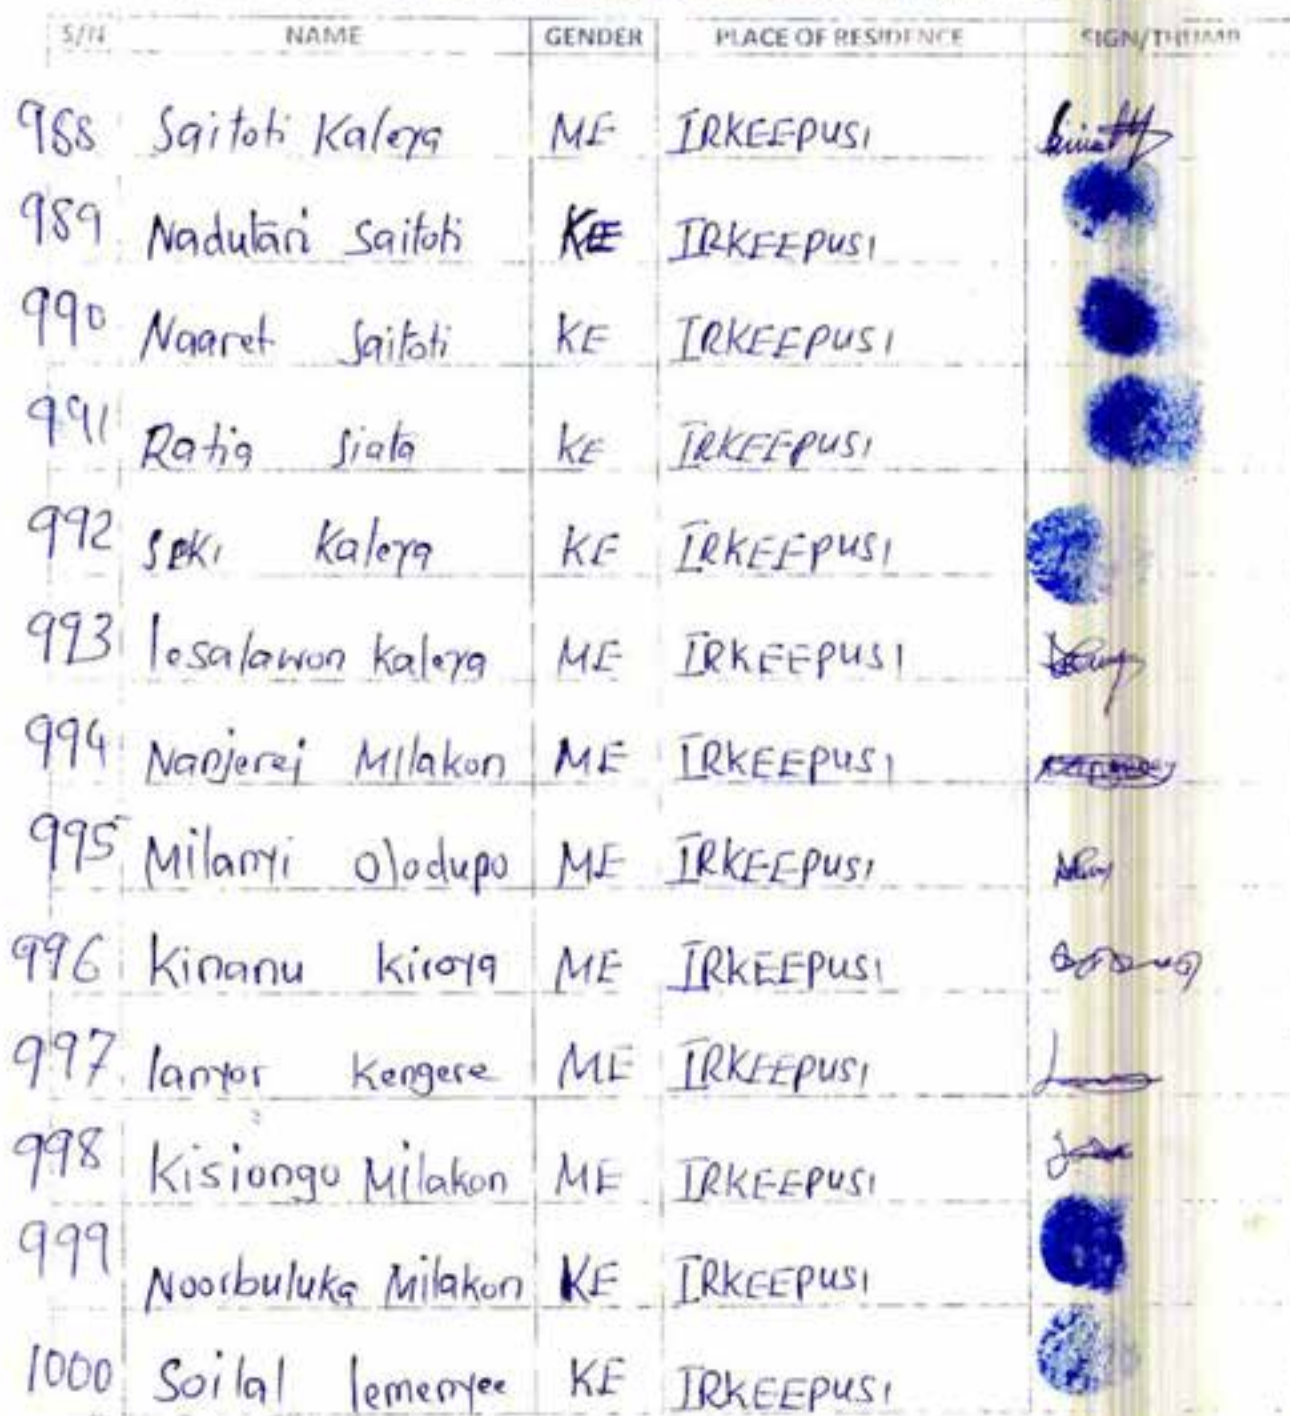 S/N NAME GENDER PLACE OF RESIDENCE SIGN/THUMB
988 Saitoti Kaleya ME IRKEEPUSI
989 Nadutari Saitoti KE IRKEEPUSI
990 Naaret Saitoti KE IRKEEPUSI
991 Ratia Siata KE IRKEEPUSI
992 Seki Kaleya KE IRKEEPUSI
993 lesalawon Kaleya ME IRKEEPUSI
994 Nanjerej Milakon ME IRKEEPUSI
995 Milanyi Olodupo ME IRKEEPUSI
996 Kinanu Kiroya ME IRKEEPUSI
997 lanyor Kengere ME IRKEEPUSI
998 Kisiongo Milakon ME IRKEEPUSI
999 Noorbuluka Milakon KE IRKEEPUSI
1000 Soilal lemenyee KE IRKEEPUSI